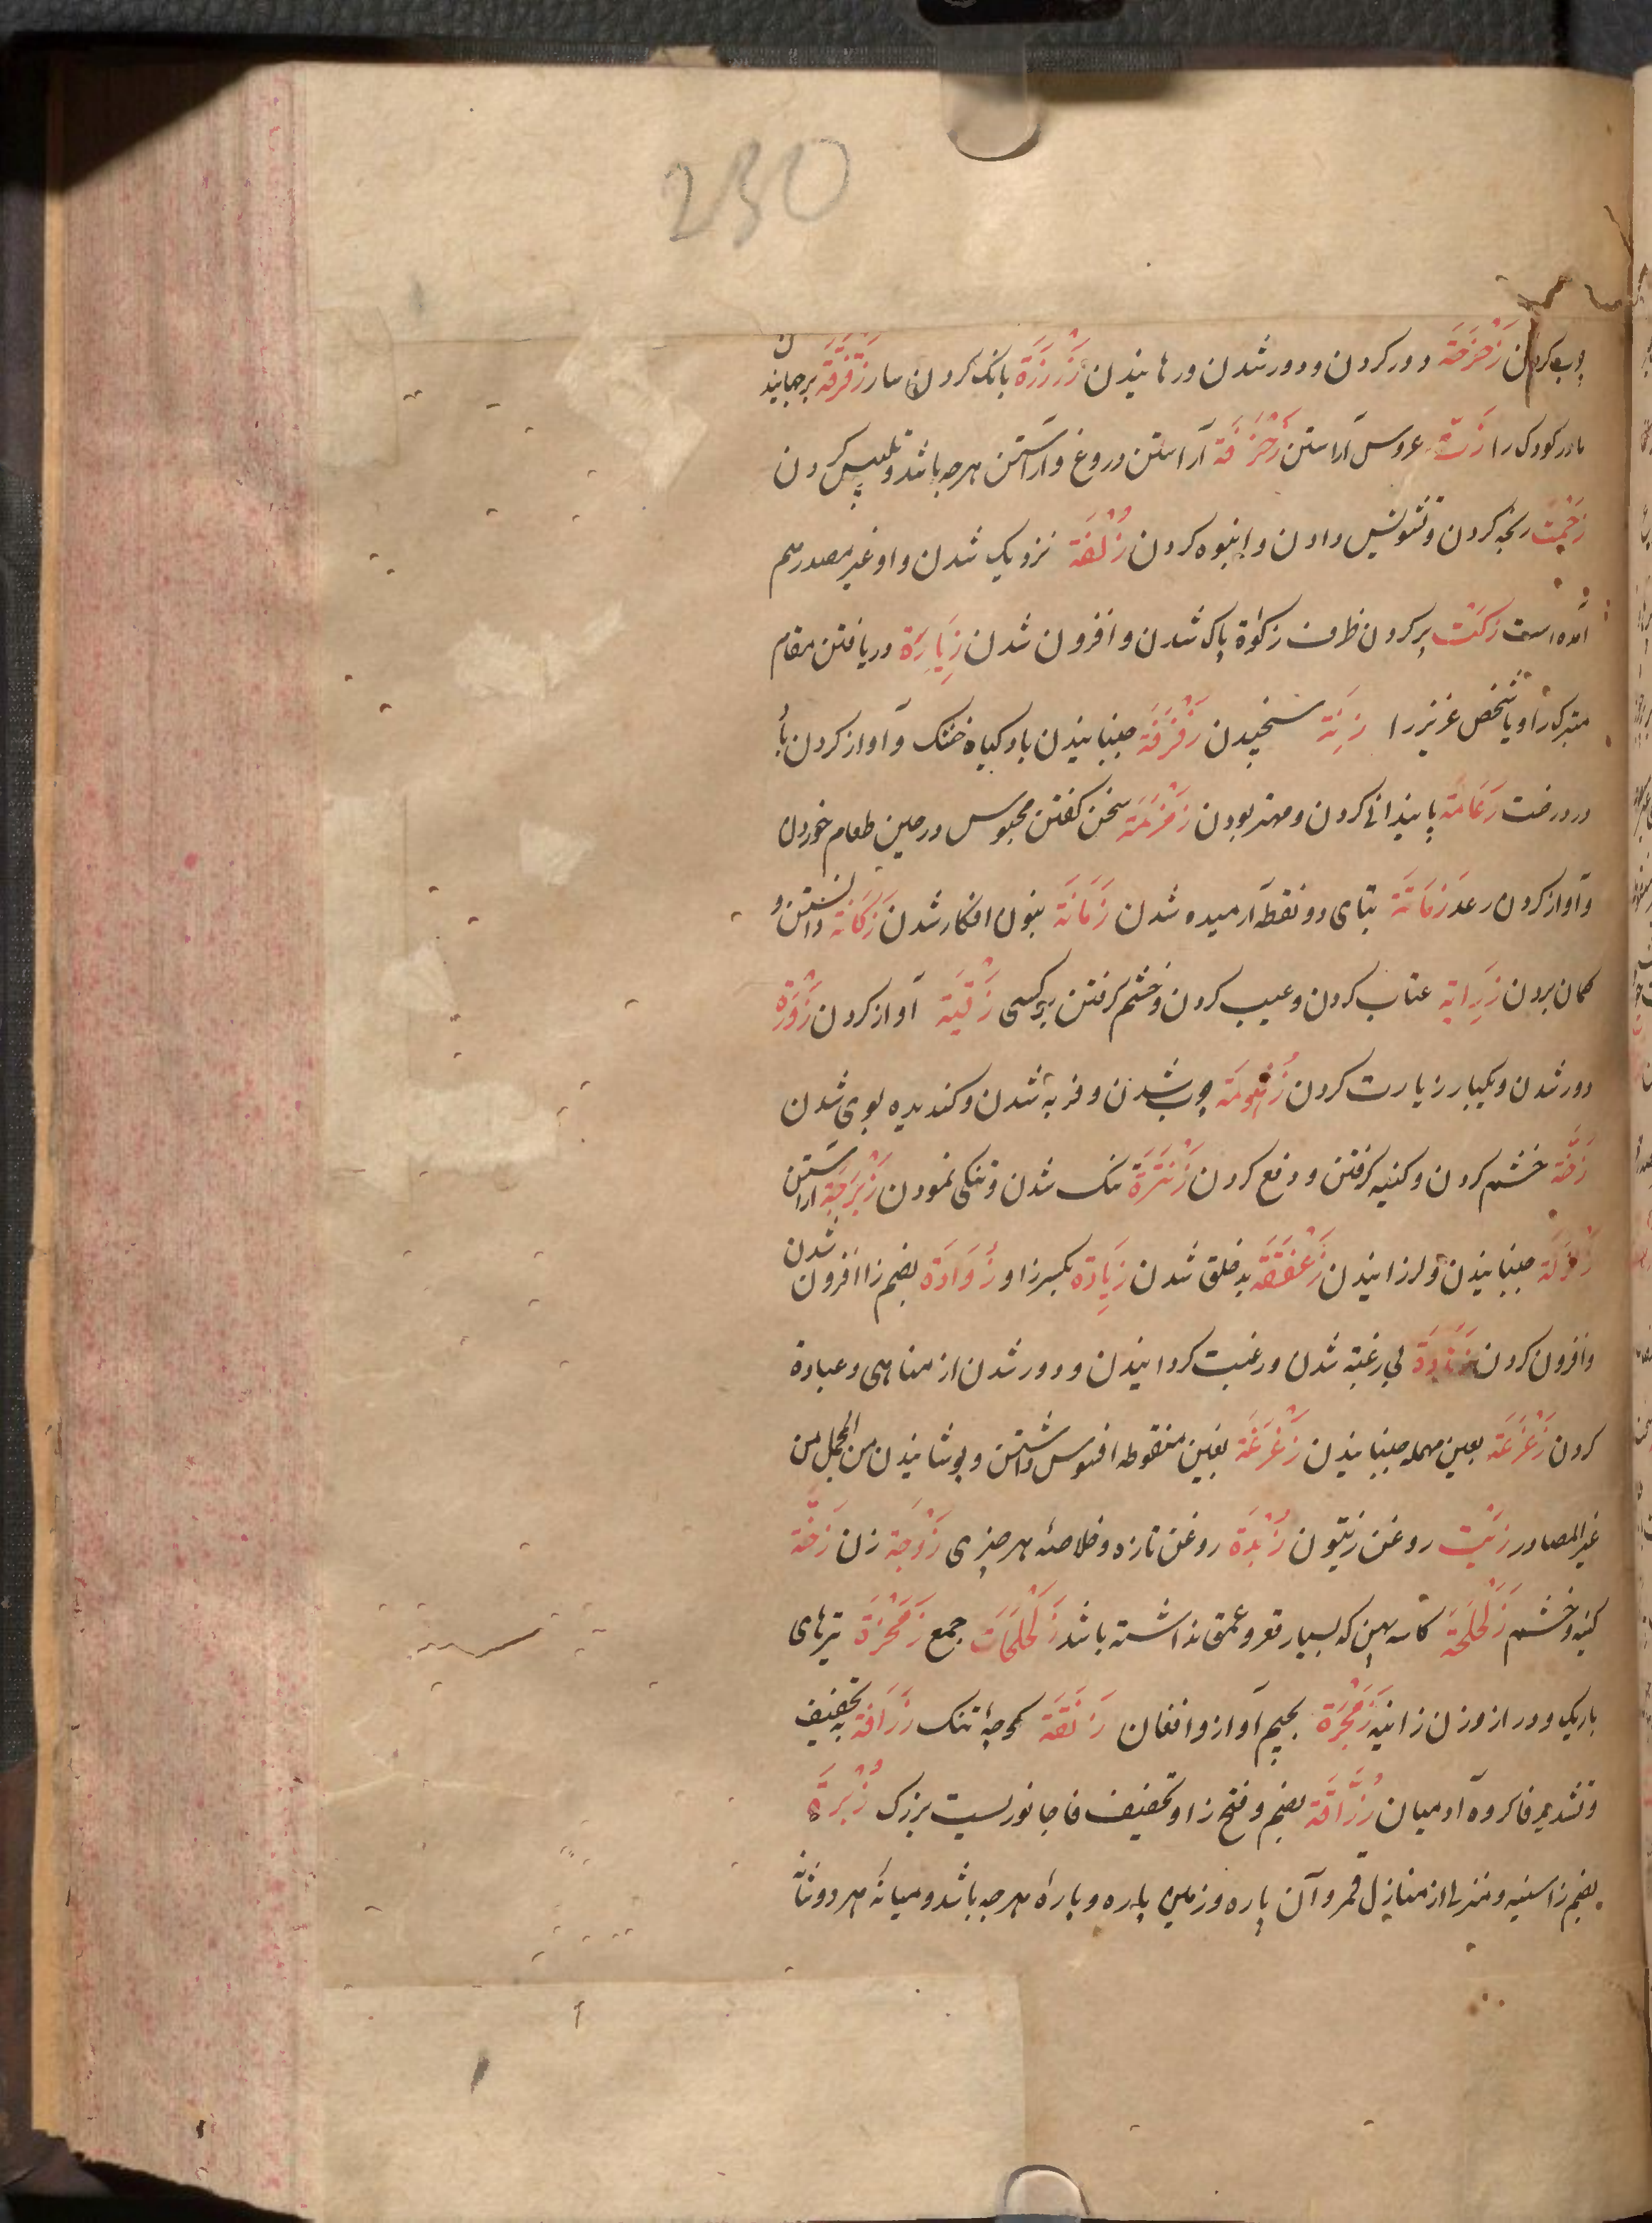 230
چوب کردن زَحْزَحَة دور کردن و دور شدن و رهانیدن زَرْزَرَة بانک کردن سار زَقْزَقَة برجهانیدن
مادر کودک را زَتّة عروس آراستن زَخْرَفَة آراستن دروغ و آراستن هرچه باشد و تلبیس کردن
زَحْمَت رنجه کردن و تشویش دادن و انبوه کردن زُلْفَة نزدیک شدن و او غیر مصدر هم
آمده است زکتت پر کردن ظرف زکوة پاک شدن و افزون شدن زِیَارَة دریافتن مقام
متبرک را و یا شخص عزیز را زِنَة سنجیدن زَفْزَفَة جنبانیدن باد کیاه خشک و آواز کردن باد
در درخت زَعَامَة پایندانی کردن و مهتر بودن زَمْزَمَة سخن کفتن مجوس در حین طعام خوردن
و آواز کردن رعد زَمَاتَة بتای دو نقطه آرمیده شدن زَمَانَة بنون افکار شدن زَکَانَة دانستن و
کمان بردن زِرَایَة عتاب کردن و عیب کردن و خشم کرفتن بر کسی زَقْیَة آواز کردن زَوْرَة
دور شدن و یکبار زیارت کردن زُهُومَة چرب شدن و فربه شدن و کندیده بوی شدن
زَخَّة خشم کردن و کینه کرفتن و دفع کردن زَنْتَرَة تنک شدن و تنکی نمودن زَبْرَجَة آراستن
جنبانیدن و لرزانیدن زَعْفَقَة بدخلق شدن زِیَادَة بکسر زا و زُوَادَة بضم زا افزون شدن
و افزون کردن زَهَادَة بی رغبته شدن و رغبت کردانیدن و دور شدن از مناهی و عبادة
کردن زَعْزَعَة بعین مهمله جنبانیدن زَغْزَغَة بغین منقوطه افسوس داشتن و پوشانیدن من المجمل من
غیر المصادر زَیْت روغن زیتون زُبْدَة روغن تازه و خلاصهٔ هر چیزی زَوْجَة زن زَخَّة
کینه و خشم زَلَحْلَحَة کاسه پهن که بسیار قعر و عمق نداشته باشد زَلَحْلَحَات جمع زَمْخَرَة تیرهای
باریک و دراز و زن زانیه زَمْجَرَة بجیم آواز و افغان زَنَقَة کوچهٔ تنک زَرَافَة به تخفیف
و تشدید فا کروه آدمیان زُرَّافَة بضم و فتح زا و تخفیف فا جانوریست بزرک زُبْرَة
بضم زا سینه و منزلی از منازل قمر و آن پاره و زمین پاره و پارهٔ هرچه باشد و میانهٔ هر دو شانه